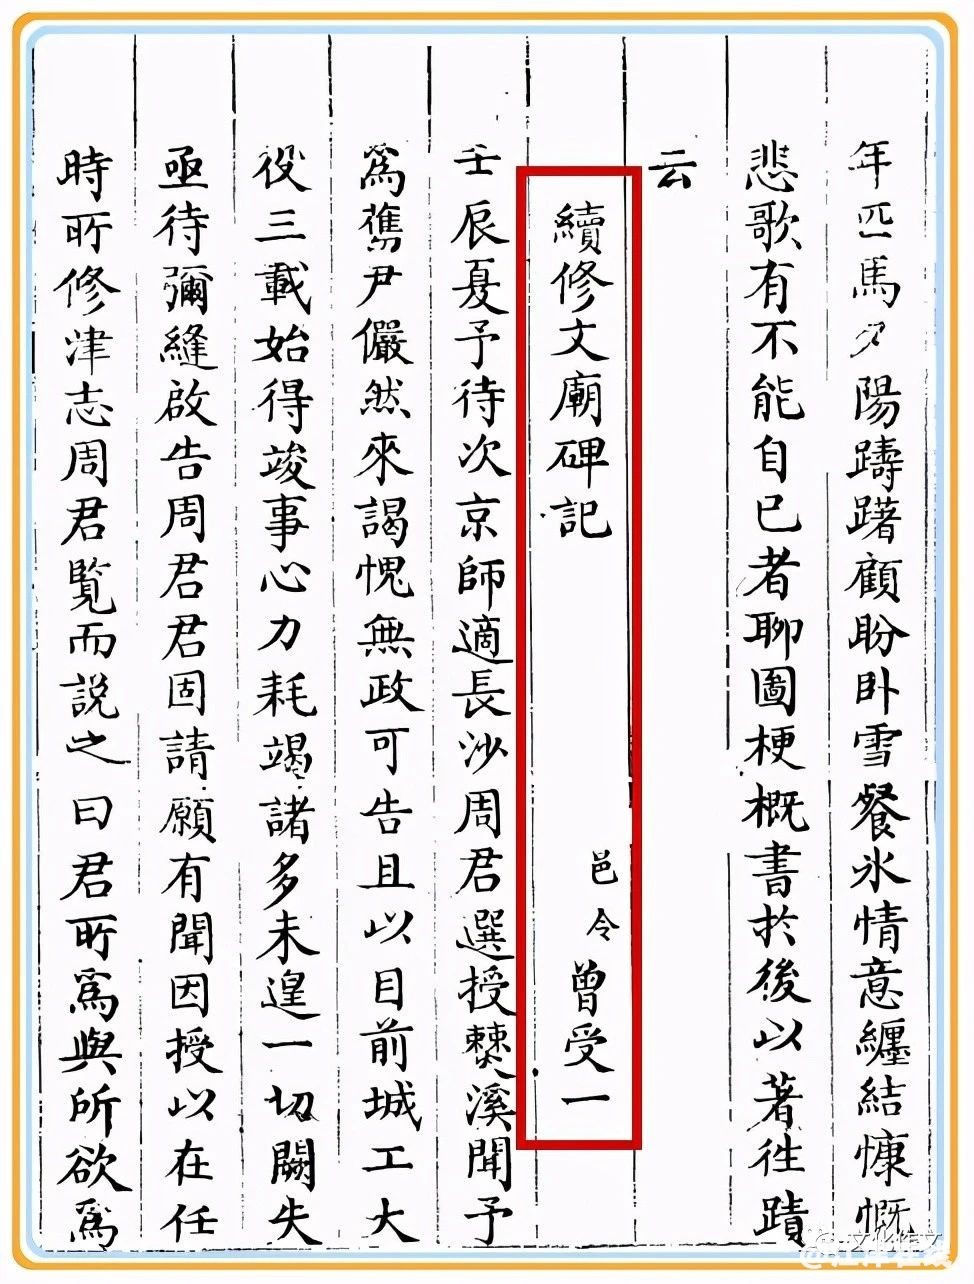 年匹馬夕陽躊躇顧盼臥雪餐氷情意纏結慷慨
悲歌有不能自已者聊圖梗概書於後以著徃蹟
云
續修文廟碑記 邑令曾受一
壬辰夏予待次京師適長沙周君選授僰溪聞予
為舊尹儼然來謁愧無政可告且以目前城工大
役三載始得竣事心力耗竭諸多未遑一切闕失
亟待彌縫啟告周君君固請願有聞因授以在任
時所修津志周君覽而說之曰君所為與所欲為